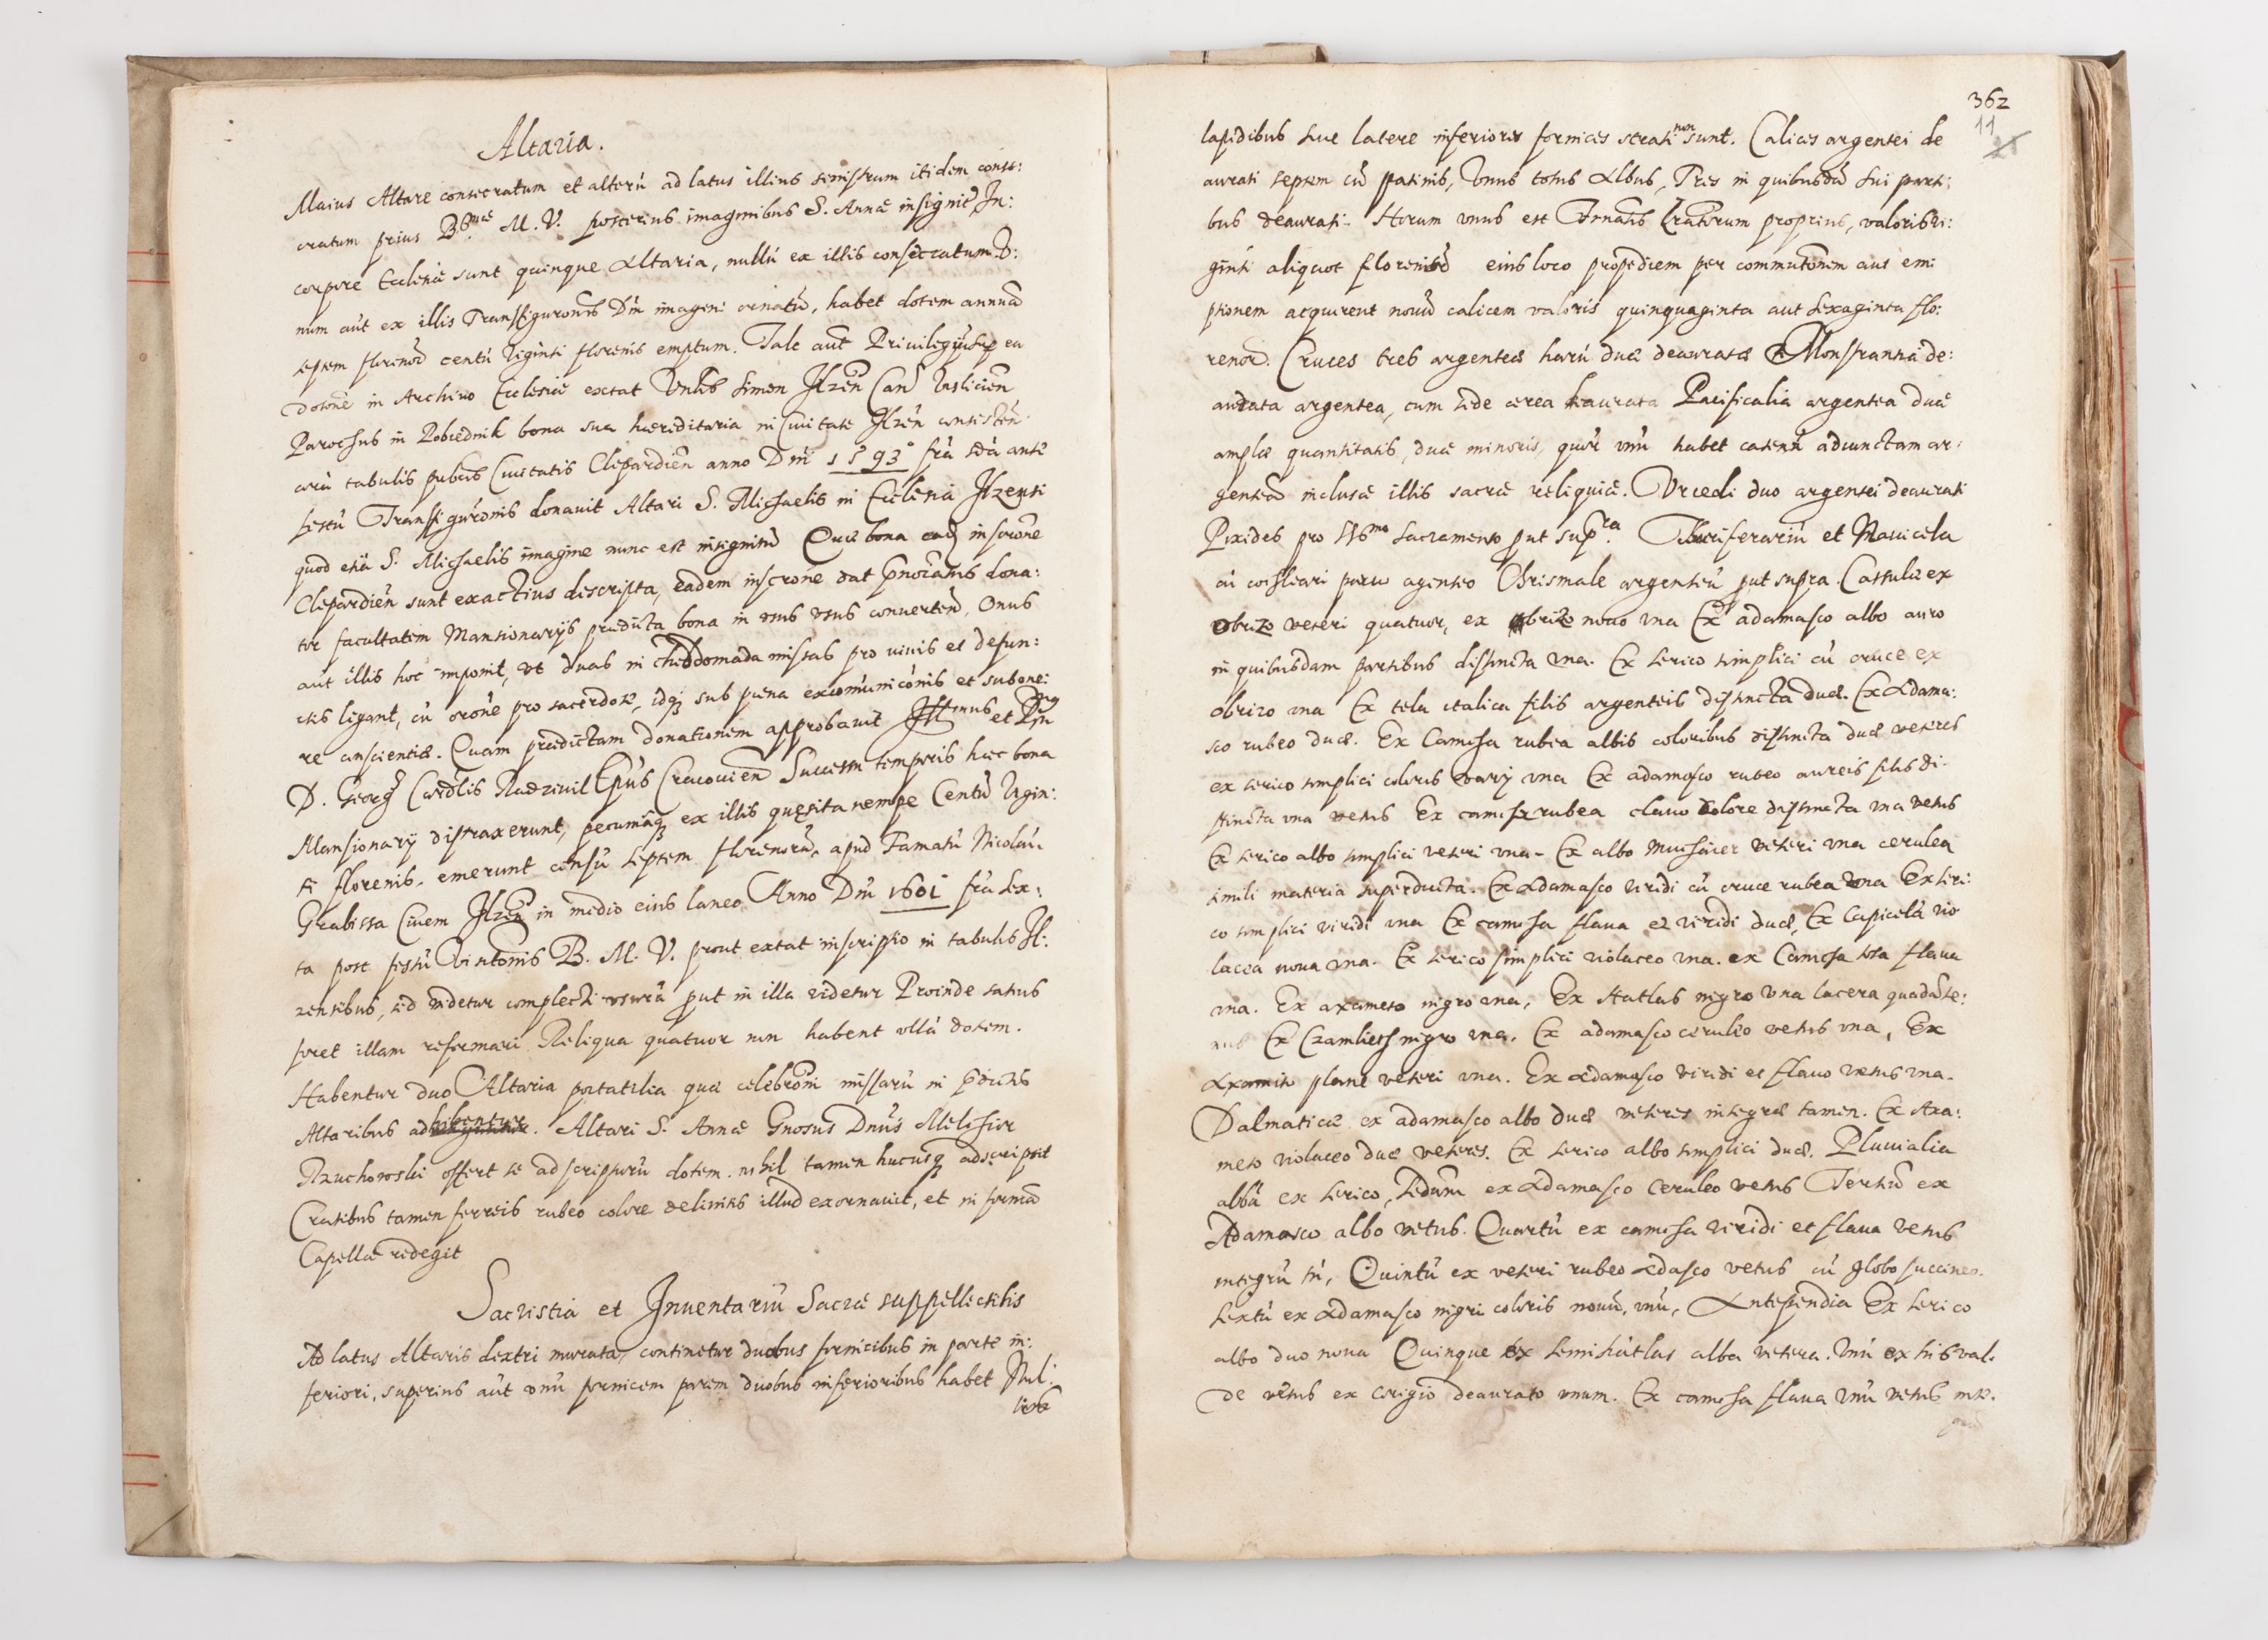 Altaria.
Maius Altare consecratum et alterũ ad latus illius sinistrum itidem conse:
cratum prius B. M. V. posterius imaginibus S. Annæ insignit̃. In:
corpore Ecclesiæ sunt quinque Altaria, nullũ ex illis consecratum. V:
num aũt ex illis Transfiguronis Dñi imagini ornatũ, habet dotem annuã
septem florenoℛ centũ viginti florenis emptum. Tale aũt Priuilegiũ sup ea
dotone in Archiuo Ecclesiæ extat Simon Ilzeñ Vislicien
Parochus in Pobiednik bona sua hæreditaria in Ciuitate Ilzeñ
tabulis publicis Ciuitatis Clepardieñ anno Dñi 1593 frã 2dã ante
festũ Transfiguronis donauit Altari S. Michaelis in Ecclesia Ilzensi
quod etiã S. Michaelis imagine nunc est insignitũ Quæ bona inscrone
Clepardieñ sunt exactius descripta, eadem inscrone dat dona:
tor facultatem Mansionarijs prædicta bona in usus conuerteñ. Onus
aũt illis hoc imponit, ut duas in hebdomada missas pro uiuis et defun:
ctis legant, cũ orone pro sacerdote, idq̃ sub pœna excommunicõnis et sub one:
re conscientiæ. Quam prædictam donationem approbauit Illmus et Rmus
D. Georg Cardlis Radziuil Epus Cracouien Successu temporis hæc bona
Mansionarij distraxerunt, pecuniãq̃ ex illis quæsita nempe Centũ vigin:
ti florenis. emerunt censũ septem florenorũ apud Famatũ Nicolaũ
Grabissa Ciuem Ilzeñ in medio eius laneo Anno Dñi 1601 frã sex:
ta post festũ B. M. V. prout extat inscriptio in tabulis Il:
zensibus, sed videtur complecti usurã put in illa videtur Proinde satius
foret illam reformari Reliqua quatuor non habent ullã dotem.
Habentur duo Altaria portatilia quæ celebroni missarũ in pdictis
Altaribus adhibentur. Altari S. Annæ Gnosus Dnus Melchior
offert se ad scripturũ dotem. nihil tamen hucusq̃ adscripsit
Cratibus tamen ferreis rubeo colore delinitis illud exornauit, et in formã
Capellæ redegit
Sacristia et Inuentariũ Sacræ suppellectilis
Ad latus Altaris dextri murata, continetur duobus fornicibus in parte in:
feriori, superius aũt unũ fornicem parem duobus inferioribus habet Nul:
libi
362
11
lapidibus siue latere inferiores fornices strati non sunt. Calices argentei de
aurati septem cũ patinis, Unus totus Albus, Tres in quibusdã sui parti:
bus deaurati. Horum unus est Fratrum proprius, valoris vi:
ginti aliquot florenoℛ eius loco propediem per commutonem aut em:
ptionem acquirent nouũ calicem valoris quinquaginta aut sexaginta flo:
renoℛ. Cruces tres argenteæ harũ duæ deauratæ Monstrantia de:
aurata argentea, cum æde cerea deaurata Pacificalia argentea duæ
amplæ quantitatis, duæ minoris, quor̃ unũ habet catenã adiunctam ar:
genteã inclusæ illis sacræ reliquiæ. Urceoli duo argentei deaurati
Pixides pro SSmo Sacramento put supra. Thuriferariũ et Nauicela
cũ cochleari paruo agenteo Chrismale argenteũ put supra. Cassulæ ex
obrizo veteri quatuor, ex obrizo nouo una Ex adamasco albo auro
in quibusdam partibus distincta una. Ex serico simplici cũ cruce ex
obrizo una Ex tela italica filis argenteis distincta duæ. Ex Adama:
sco rubeo duæ. Ex Camcha rubea albis coloribus distincta duæ veteres
ex serico simplici coloris varij una Ex adamasco rubeo aureis filis di
stincta una vetus Ex camcha rubea clauo colore distincta una vetus
Ex serico albo simplici veteri una. Ex albo veteri una cerulea
simili materia superducta. Ex Adamasco viridi cũ cruce rubea una Ex seri:
co simplici viridi una Ex camcha flaua et viridi duæ, Ex Capicela vio
lacea noua una. Ex serico simplici violaceo una. ex Camcha tota flaua
una. Ex axameto nigro una, Ex Hatlas nigro una lacera quadãte:
nus Ex nigro una. Ex adamasco ceruleo vetus una, Ex
Axamito plane veteri una. Ex adamasco viridi et flauo vetus una.
Dalmaticæ ex adamasco albo duæ veteres integræ tamen. Ex Axa:
meto violaceo duæ veteres. Ex serico albo simplici duæ. Pluuialia
albũ ex serico, 2dum ex Adamasco Ceruleo vetus Tertiũ ex
Adamasco albo vetus. Quartũ ex camcha viridi et flaua vetus
integrũ tñ, Quintũ ex veteri rubeo adasco vetus cũ globo succineo.
Sextũ ex Adamasco nigri coloris nouũ, unũ, Antependia Ex serico
albo duo noua Quinque ex semihatlas alba vetera. Unũ ex his val.
de vetus ex corigio deaurato unum. Ex camcha flaua unũ vetus inte.